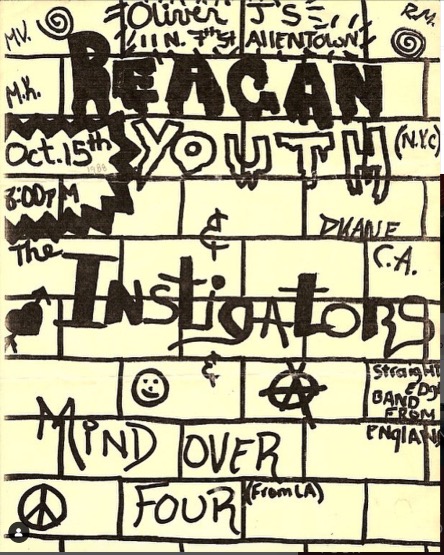 MV.
Oliver J'S
R.M.
111 N. 7th St ALLENTOWN
M.K.
REAGAN
YOUTH
(N.Y.C)
Oct. 15th
1988
8:00PM
&
DUANE
The
C.A.
INSTIGATORS
&
Straight
EDGE
BAND
FROM
ENGLAND
MIND OVER
FOUR (From LA)